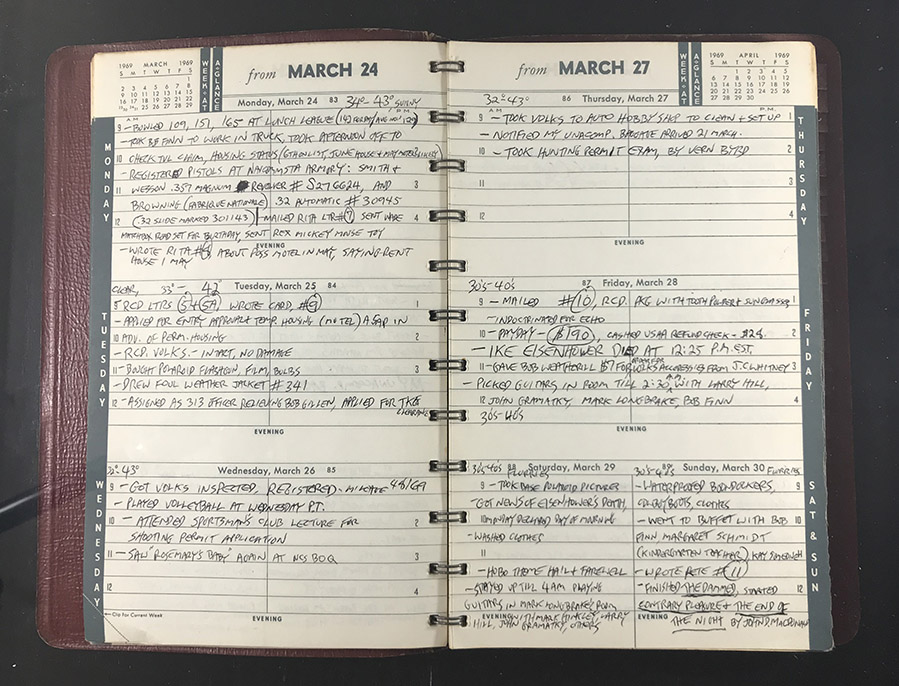 1969 MARCH 1969
S M T W T F S
1
2 3 4 5 6 7 8
9 10 11 12 13 14 15
16 17 18 19 20 21 22
23/30 24/31 25 26 27 28 29
WEEK-AT
A-GLANCE
from MARCH 24
Monday, March 24 83 34°-43° SUNNY
A M P M
MONDAY
9 - BOWLED 109, 151, 165 AT LUNCH LEAGUE
- TOOK BOB FINN TO WORK IN TRUCK, TOOK AFTERNOON OFF TO
10 CHECK TVL CLAIM, HOUSING STATUS (6TH ON LIST, JUNE HOUSE & MAY MOTEL LIKELY)
- REGISTERED PISTOLS AT ARMORY: SMITH &
11 WESSON .357 MAGNUM REVOLVER # S276624, AND
BROWNING (FABRIQUE NATIONALE) .32 AUTOMATIC # 30945
12 (.32 SLIDE MARKED 301143) - MAILED RITA LTR #7 SENT WADE 4
MATCHBOX ROAD SET FOR BIRTHDAY, SENT REX MICKEY MOUSE TOY
EVENING
- WROTE RITA # ABOUT MOTEL IN MAY, SAYING RENT
HOUSE 1 MAY
CLEAR, 33°- 42° Tuesday, March 25 84
TUESDAY
9 RCD LTRS 5 & 5A, WROTE CARD, #9 1
- APPLIED FOR ENTRY APPROVAL & TEMP. HOUSING (MOTEL) ASAP IN
10 ADV. OF PERM. HOUSING 2
- RCD. VOLKS. - INTACT, NO DAMAGE
11 - BOUGHT POLAROID FLASHGUN, FILM, BULBS 3
- DREW FOUL WEATHER JACKET #341
12 - ASSIGNED AS 313 OFFICER RELIEVING BOB GILLEN, APPLIED FOR
CLEARANCE
EVENING
32°-43° Wednesday, March 26 85
WEDNESDAY
9 - GOT VOLKS INSPECTED, REGISTERED - MILEAGE 48169
- PLAYED VOLLEYBALL AT WEDNESDAY P.T.
10 - ATTENDED SPORTSMAN'S CLUB LECTURE FOR 2
SHOOTING PERMIT APPLICATION
11 - SAW "ROSEMARY'S BABY" AGAIN AT NSS BOQ 3
12 4
EVENING
Clip For Current Week
from MARCH 27
WEEK-AT
A-GLANCE
1969 APRIL 1969
S M T W T F S
1 2 3 4 5
6 7 8 9 10 11 12
13 14 15 16 17 18 19
20 21 22 23 24 25 26
27 28 29 30
32°-43° 86 Thursday, March 27
A M P.M.
THURSDAY
9 - TOOK VOLKS TO AUTO HOBBY SHOP TO CLEAN & SET UP 1
- NOTIFIED MY UNACOMP. BAGGAGE ARRIVED 21 MARCH.
10 - TOOK HUNTING PERMIT EXAM, BY VERN BYRD 2
11 3
12 4
EVENING
30'S-40'S 87 Friday, March 28
FRIDAY
9 - MAILED #10, RCD. PKG WITH TOOTH POLISHER & SUNGLASSES 1
- INDOCTRINATED FOR ECHO
10 - PAYDAY - $190, CASHED USAA REFUND CHECK - $28. 2
- IKE EISENHOWER DIED AT 12:25 P.M. EST.
11 - GAVE BOB WEATHERILL $7 FOR VOLKS ACCESSORIES FROM J.C. WHITNEY 3
- PICKED GUITARS IN ROOM TILL 2:30 AM WITH LARRY HILL,
12 JOHN GRAMATKY, MARK LONGBRAKE, BOB FINN 4
30'S-40'S
EVENING
30'S-40'S 88 Saturday, March 29
FLURRIES
9 - TOOK BASE POLAROID PICTURES
- GOT NEWS OF EISENHOWER'S DEATH,
10 MONDAY DECLARED DAY OF MOURNING
- WASHED CLOTHES
11
- HOBO THEME HAIL & FAREWELL
- STAYED UP TILL 4 AM PLAYING
GUITARS IN MARK LONGBRAKE'S ROOM
EVENING WITH MARK HINCKLEY, LARRY
HILL, JOHN GRAMATKY, OTHERS
30'S-40'S 89 Sunday, March 30 FLURRIES
SAT & SUN
9 - WATERPROOFED BOONDOCKERS,
COWBOY BOOTS, CLOTHES
- WENT TO BUFFET WITH BOB 10
FINN MARGARET SCHMIDT
(KINDERGARTEN TEACHER) KAY 11
- WROTE RITE #11
- FINISHED THE DAMNED, STARTED 12
CONTRARY PLEASURE & THE END OF
EVENING THE NIGHT BY JOHN D. MACDONALD